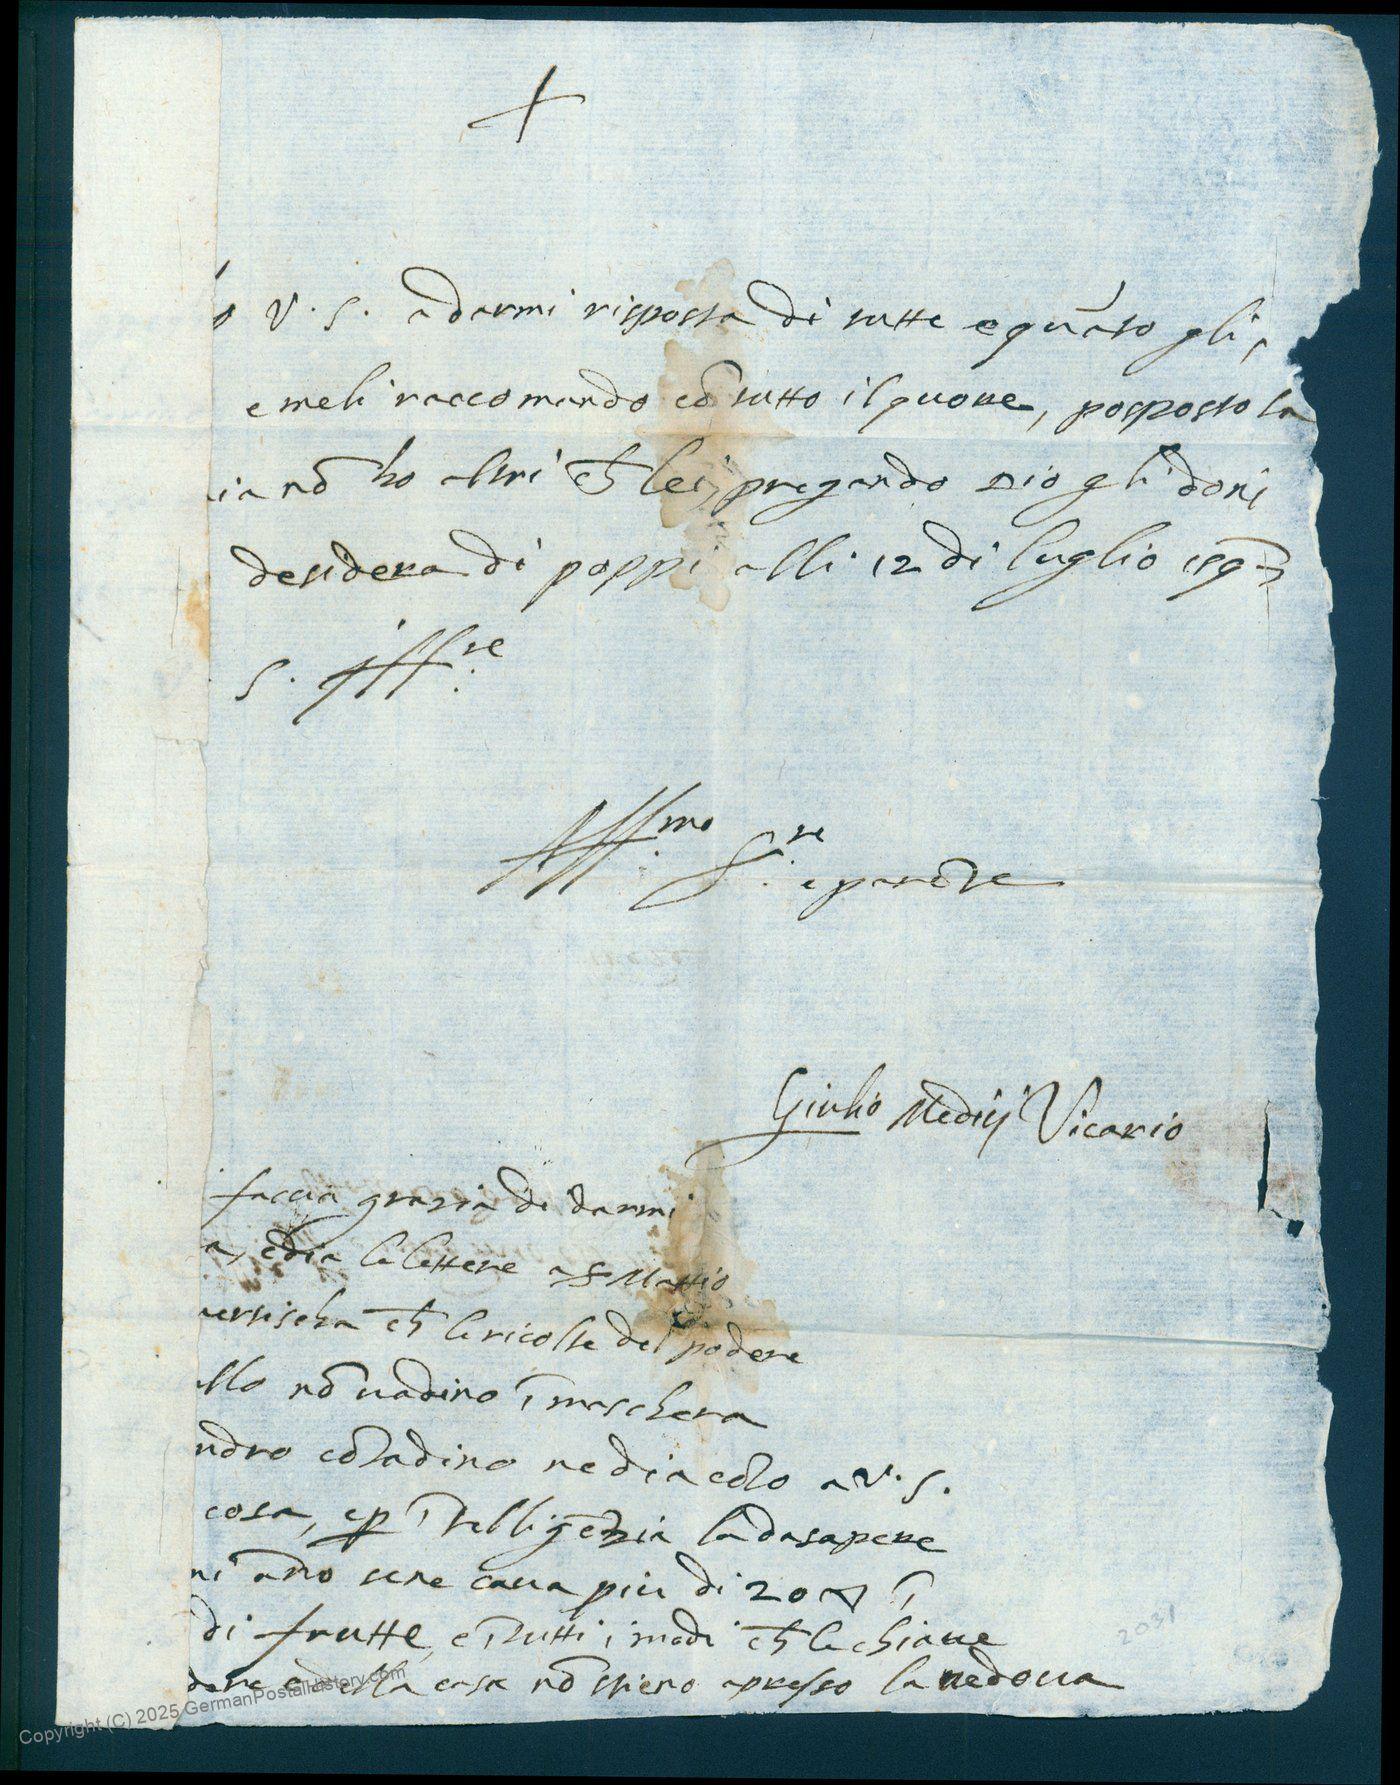 V. S. a darmi risposta di tutte e quãto gli
e meli raccomando cõ tutto il quore, posposto la
nõ ho altri ch̃ lei, pregando Dio gli doni
desidera di poppi alli 12 di luglio 159
S. Aff.re
Aff.mo S.re e parẽte
Giulio Medicj Vicario
faccia grazia di darmi
e dia le lettere a S Mattio
ch̃ le ricolte del podere
nõ vadino ĩ maschera
cõtadino ne dia cõto a V. S.
cosa, e p ĩtelligẽzia la da sapere
ãno se ne cava piu di 20 ĩ
di frutte, e ĩ tutti i modi ch̃ le chiave
della casa nõ stieno apresso la vedova
2031
Copyright (C) 2025 GermanPostalHistory.com